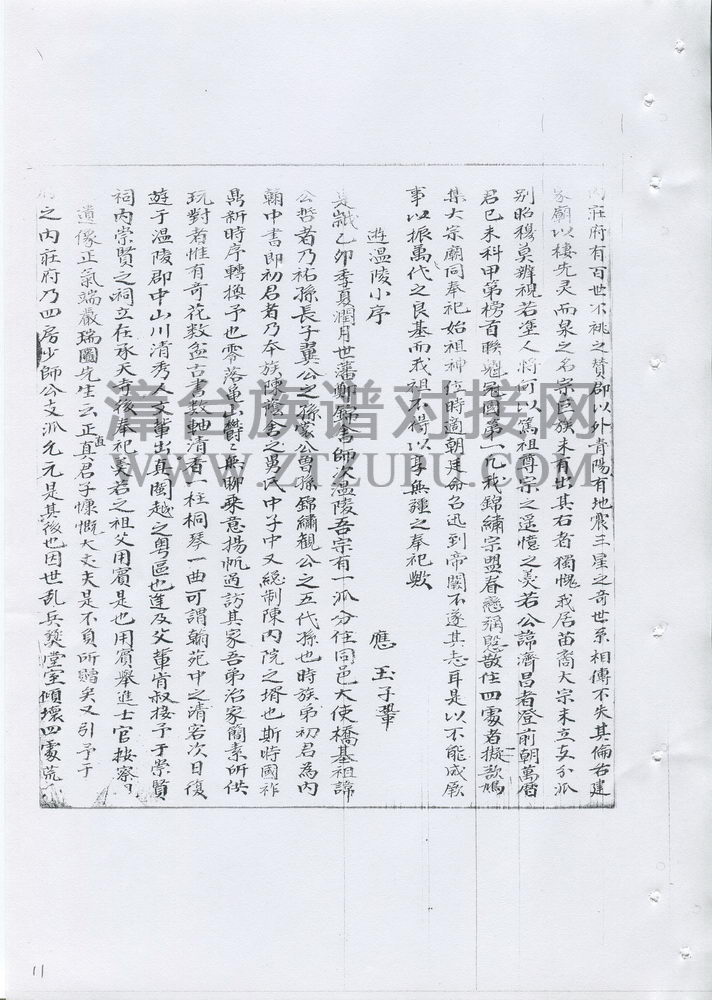 內莊府有百世不祧之贊郡以外青陽有地震三星之奇世系相傳不失其倫右建
家廟以棲先灵而泉之名宗巨族未有出其右者獨愧我居苗裔大宗未立支分派
別昭穆莫辨視若塗人將何以篤祖尊宗之遥憶之羙若公諱濟昌者登前朝萬曆
君已未科甲第榜首聯魁冠國第一凢我錦繡宗盟眷戀稱慇散住四處者擬歆鳩
集大宗廟同奉祀始祖神位時適朝廷命召迅到帝闕不遂其志耳是以不能成厥
事以振萬代之良基而我祖不得以享無疆之奉祀歟
應玉子鞏
遊溫陵小序
歲乙卯季夏潤月世藩鄭錦舍師次溫陵吾宗有一派分住同邑大使橋基祖諱
公哲者乃祐孫長子翼公之孫家公曾孫錦繡観公之五代孫也時族弟初君為內
翰中書即初君者乃本族陳蔭舍之男氏中子中又総制陳內院之壻也斯時國祚
鼎新時序轉換予也零落亀山欝々無聊乗意揚帆過訪其家吾弟治家簡素所供
玩對者惟有奇花数盆古書数軸清香一柱桐琴一曲可謂翰苑中之清客次日復
遊于溫陵郡中山川清秀人文輩出真閩越之粤區也逹及父輩肯叔接予于崇賢
祠內崇賢之祠立在承天寺後奉祀吳若之祖父用賓是也用賓舉進士官按察
遺像正氣端嚴瑞圖先生云正真直君子慷慨大丈夫是不負所贈矣又引予于
之內莊府乃四房少師公支派允元是其後也因世乱兵燹堂室傾壞四處荒
漳台族谱对接网
WWW.ZTZUPU.COM
11